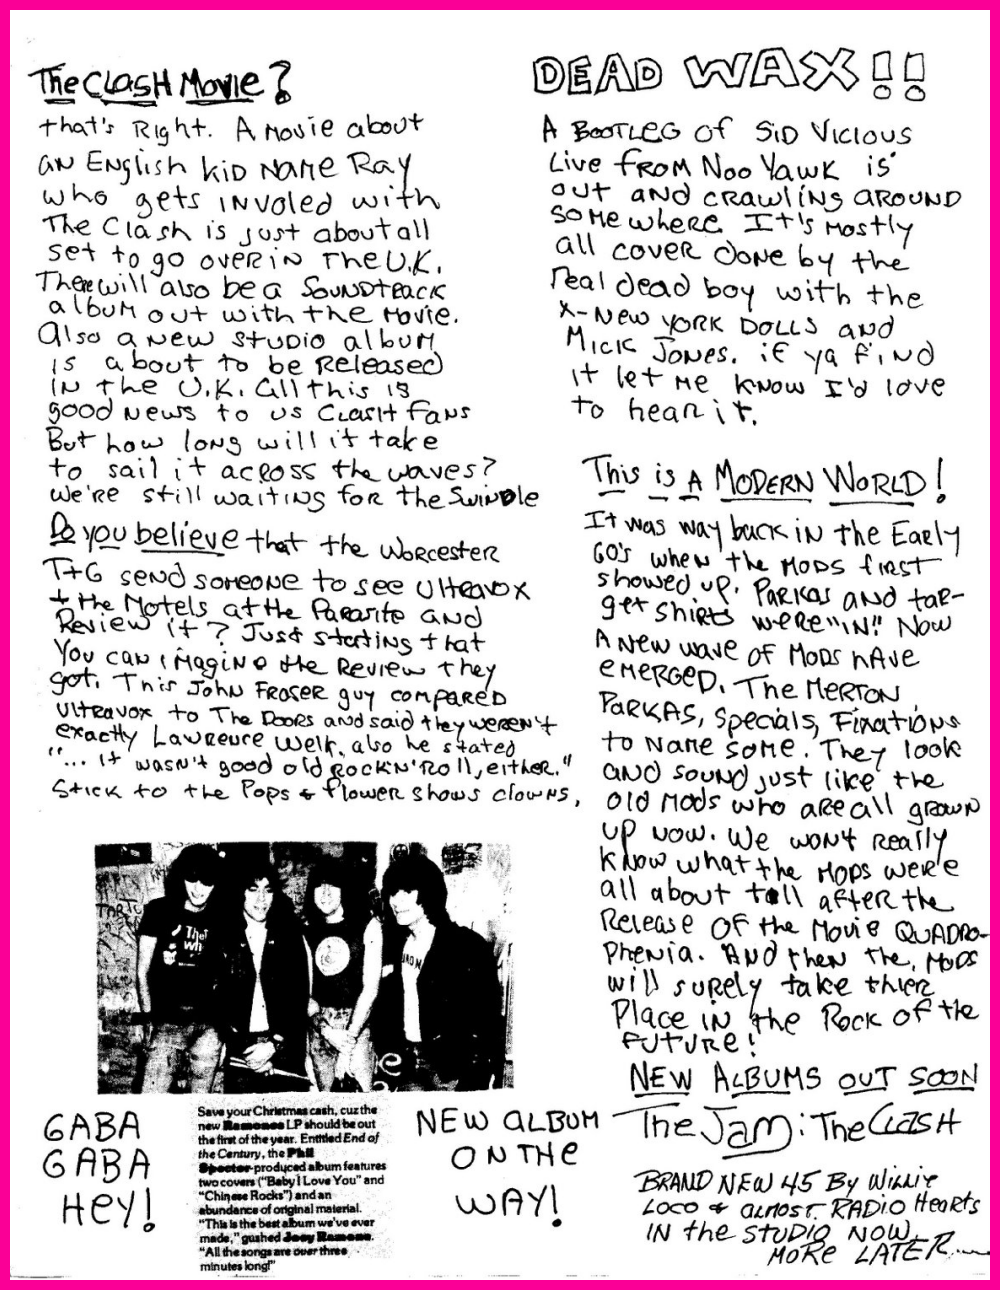 The Clash Movie?
that's Right. A Movie about
an English kid name Ray
who gets involed with
The Clash is just about all
set to go over in The U.K.
There will also be a Soundtrack
album out with the Movie.
Also a new studio album
is about to be released
in the U.K. All this is
good news to us Clash fans
But how long will it take
to sail it across the waves?
We're still waiting for the Swindle
Do you believe that the Worcester
T+G send someone to see Ultravox
+ the Motels at the Parasite and
Review it? Just stating that
You can imagine the Review they
got. This John Fraser guy compared
Ultravox to The Doors and said they weren't
exactly Lawrence Welk, also he stated
"... it wasn't good old Rock N' Roll, either."
Stick to the Pops & flower shows clowns,
The
Wh
GABA
GABA
HEY!
Save your Christmas cash, cuz the
new Ramones LP should be out
the first of the year. Entitled End of
the Century, the Phil
Spector-produced album features
two covers ("Baby I Love You" and
"Chinese Rocks") and an
abundance of original material.
"This is the best album we've ever
made," gushed Joey Ramone.
"All the songs are over three
minutes long!"
NEW ALBUM
ON THE
WAY!
DEAD WAX!!
A Bootleg of Sid Vicious
Live from Noo Yawk is
out and crawling around
somewhere. It's mostly
all cover done by the
real dead boy with the
X-New York Dolls and
Mick Jones. if ya find
it let me know I'd love
to hear it.
This is A Modern World!
It was way back in the Early
60's when the Mods first
showed up. Parkas and tar-
get shirts were "IN!" Now
A new wave of Mods have
emerged. The Merton
Parkas, Specials, Fixations
to name some. They look
and sound just like the
old Mods who are all grown
up now. We won't really
know what the Mods were
all about till after the
Release of the Movie Quadro-
phenia. And then the Mods
will surely take thier
Place in the Rock of the
Future!
New Albums out soon
The Jam : The Clash
BRAND NEW 45 By Willie
Loco & almost RADIO Hearts
IN the STUDIO NOW
MORE LATER....